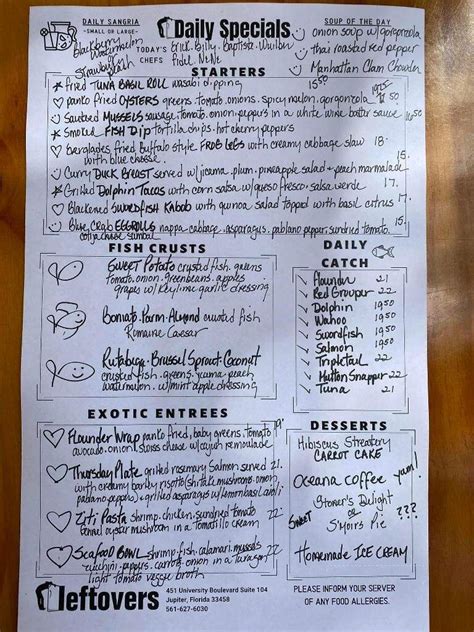 DAILY SANGRIA
- SMALL OR LARGE -
Blackberry
Watermelon
Strawberry
Peach
Daily Specials
TODAY'S CHEFS
Brick. Billy. Baptista. Wuilber
Fidel. NeNe
SOUP OF THE DAY
onion soup w/gorgonzola
thai roasted red pepper
Manhattan Clam Chowder
STARTERS
fried TUNA BASIL ROLL wasabi dipping 15.50
panko fried OYSTERS greens. tomato. onions. spicy melon. gorgonzola
Sautéed MUSSELS sausage. tomato. onion. peppers in a white wine butter sauce 14.50
Smoked FISH DIP tortilla chips. hot cherry peppers
Everglades fried Buffalo style FROG LEGS with creamy cabbage slaw 18.
with blue cheese.
Curry DUCK BREAST served w/jicama. plum. pineapple salad + peach marmalade 15.
Grilled DOLPHIN TACOS with corn salsa w/queso fresco. salsa verde 17.
Blackened SWORDFISH KABOB with quinoa salad topped with basil citrus 17.
Blue Crab EGGROLLS nappa cabbage. asparagus. poblano pepper. sundried tomato. 15.
cotija cheese
FISH CRUSTS
SWEET POTATO crusted fish. greens
tomato. onion. greenbeans. apples
grapes w/Keylime garlic dressing
Boniato. Parm. Almond crusted fish
Romaine Caesar
Rutabaga. Brussel Sprout. Coconut
crusted fish. greens. jicama peach
watermelon. w/mint apple dressing
DAILY CATCH
Flounder 21
Red Grouper 22
Dolphin 19.50
Wahoo 19.50
Swordfish 19.50
Salmon 19.50
Tripletail 22
Mutton Snapper 22
Tuna 21
EXOTIC ENTREES
Flounder Wrap panko fried, baby greens. tomato 19.
avocado. onion. swiss cheese w/cajun remoulade
Thursday Plate grilled rosemary Salmon served 21.
with creamy barley risotto (shiitake mushrooms. onion
poblano peppers) + grilled asparagus w/lemon basil aioli
Ziti Pasta shrimp. chicken. sundried tomato 22.
fennel oyster mushroom in a Tomatillo cream
Seafood Bowl shrimp. fish. calamari. mussels 22.
zucchini. peppers. carrot. onion in a tarragon
light tomato veggie broth
DESSERTS
Hibiscus Streatery
CARROT CAKE
Oceana coffee yum!
Stoner's Delight
sweet or ???
S'moirs Pie
Homemade ICE CREAM
leftovers
451 University Boulevard Suite 104
Jupiter, Florida 33458
561-627-6030
PLEASE INFORM YOUR SERVER
OF ANY FOOD ALLERGIES.